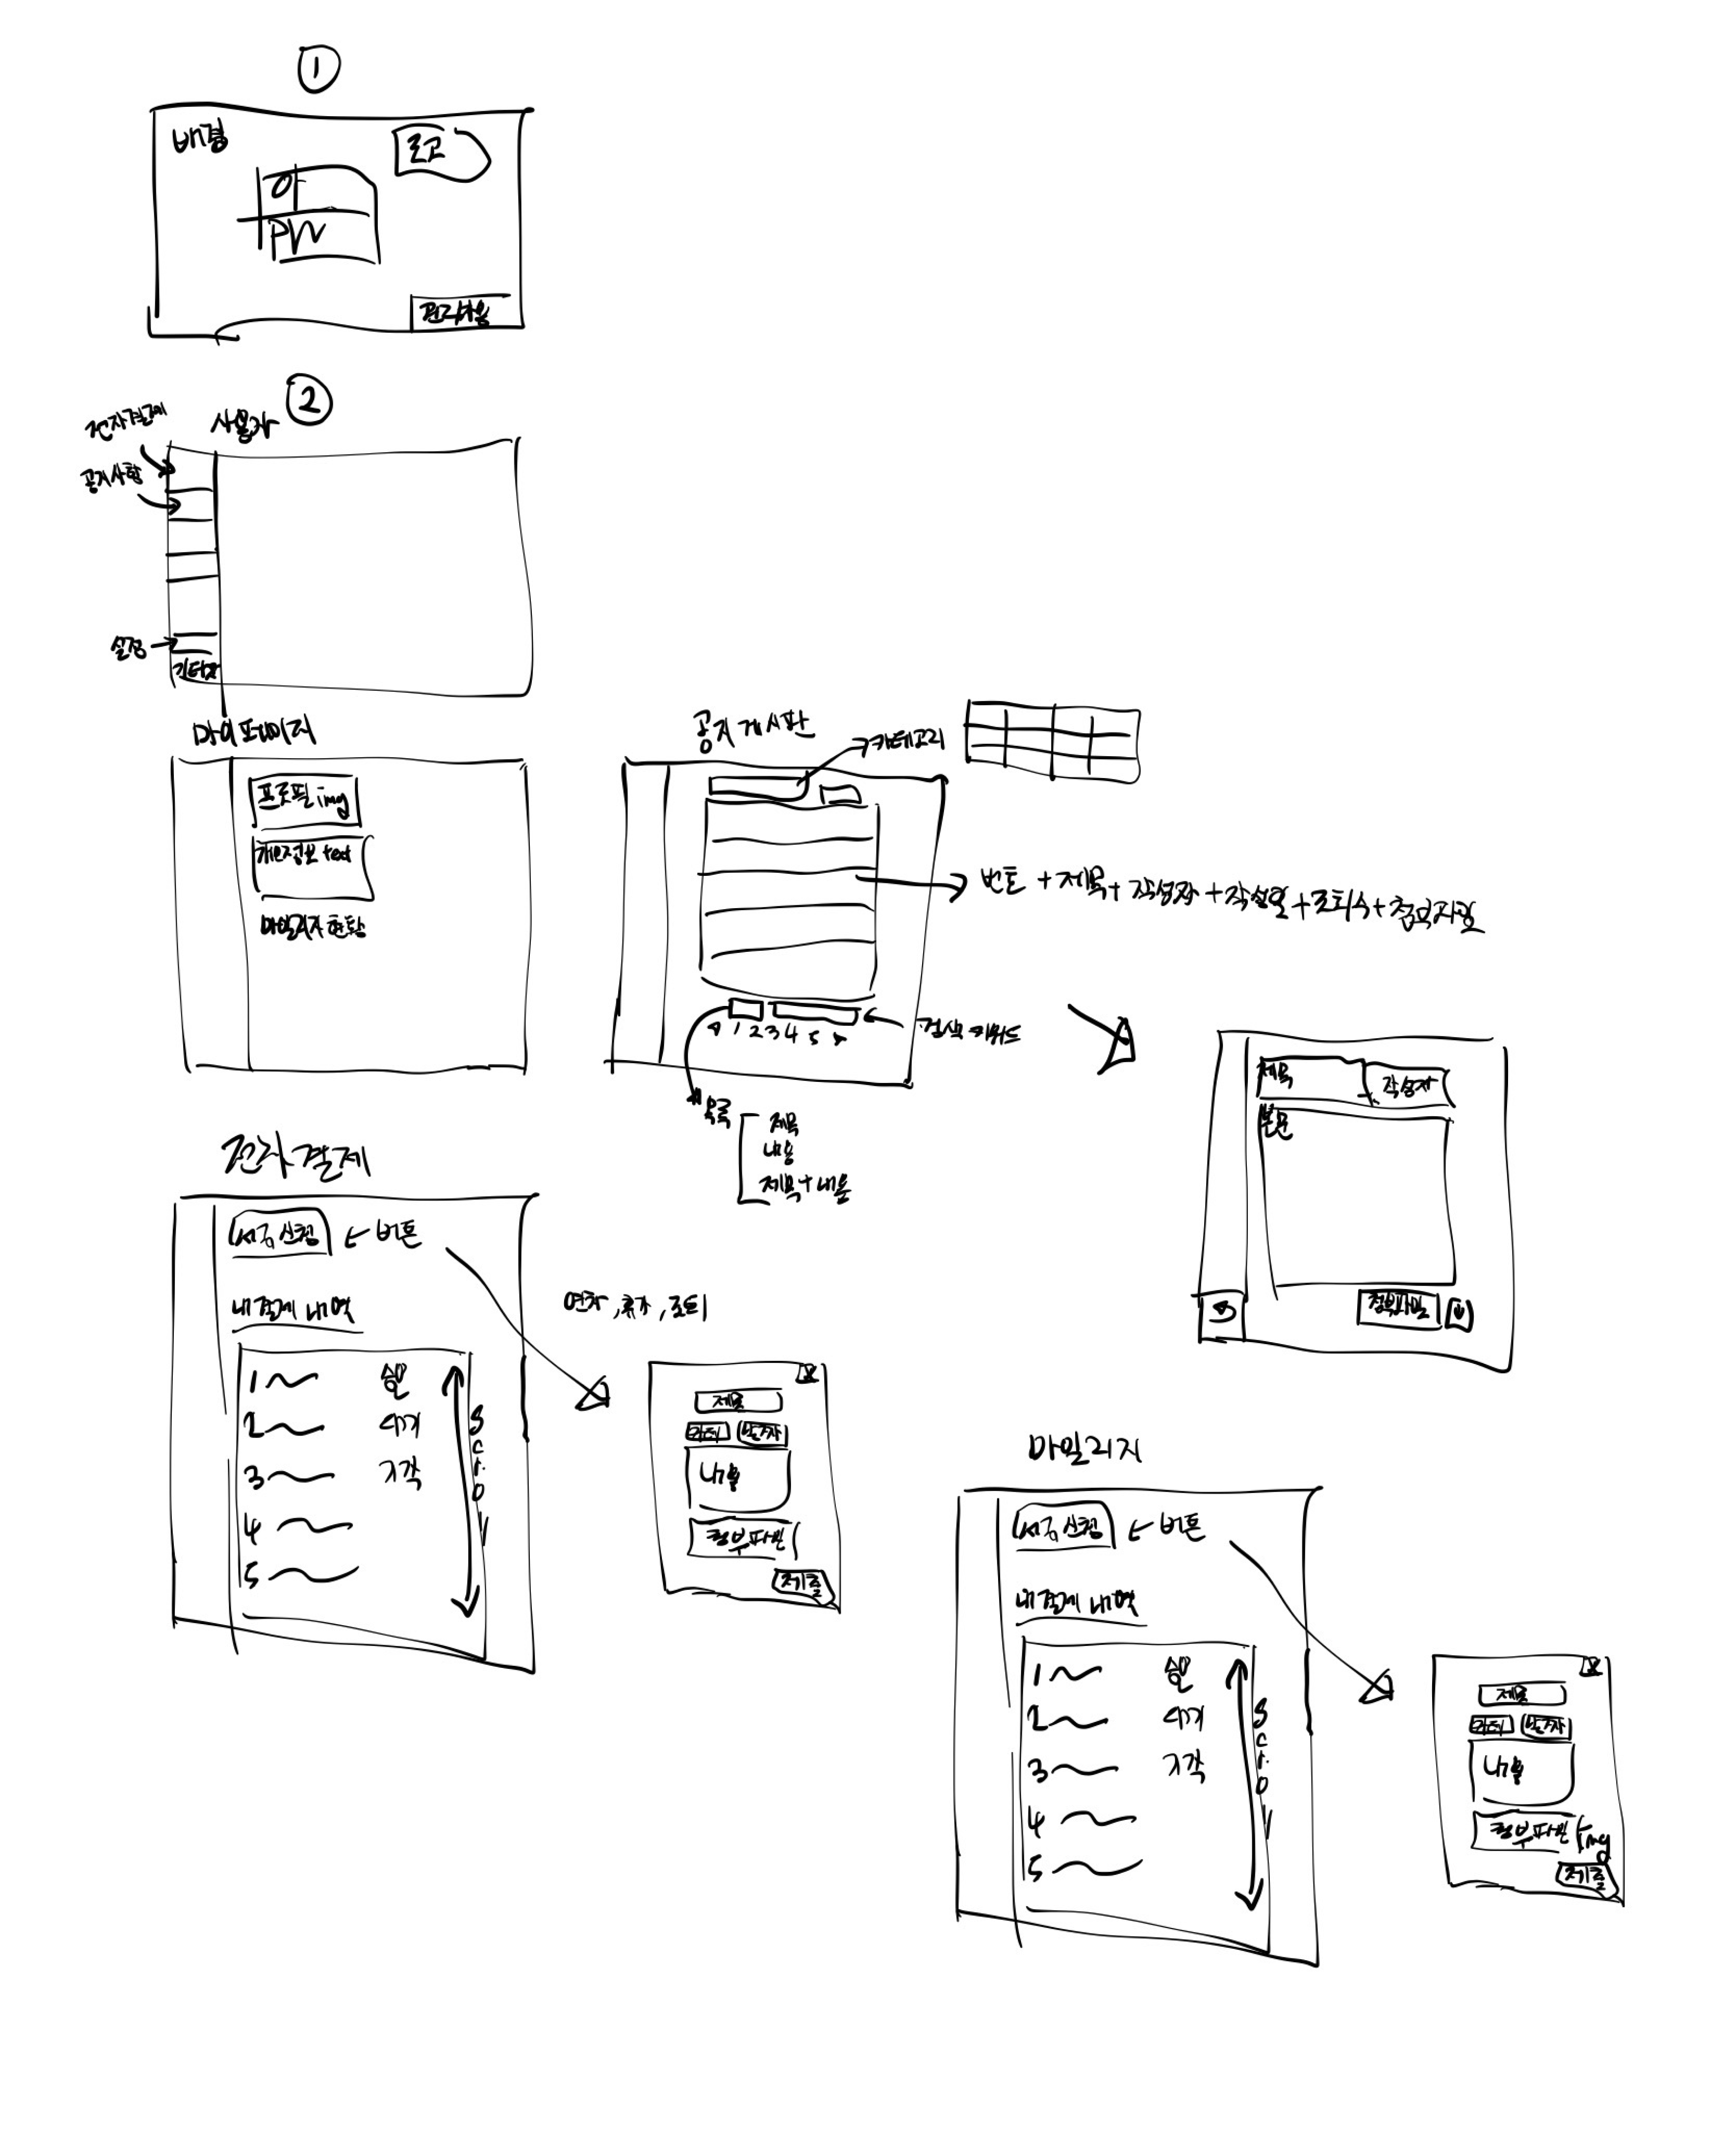 ①
배경
로고
아
PW
②
사용자
전자결제
공지사항
설정
기타
마이페이지
프로필 img
개인정보 text
마일리지 현황
공지게시판
카테고리
번호 + 제목 + 작성자 + 작성일 + 조회수 + 첨부파일
◁ 1 2 3 4 5 ▷
검색 키워드
목록
제목
내용
제목 + 내용
제목
작성자
본문
첨부파일
전자결제
신청
버튼
내 결제 내역
1 승인
2 대기
3 기각
4
5
scroll
연차, 휴가, 조퇴
X
제목
카테
날짜
내용
첨부파일
제출
마일리지
신청
버튼
내 결제 내역
1 승인
2 대기
3 기각
4
5
scroll
X
제목
카테
날짜
내용
첨부파일 img
제출